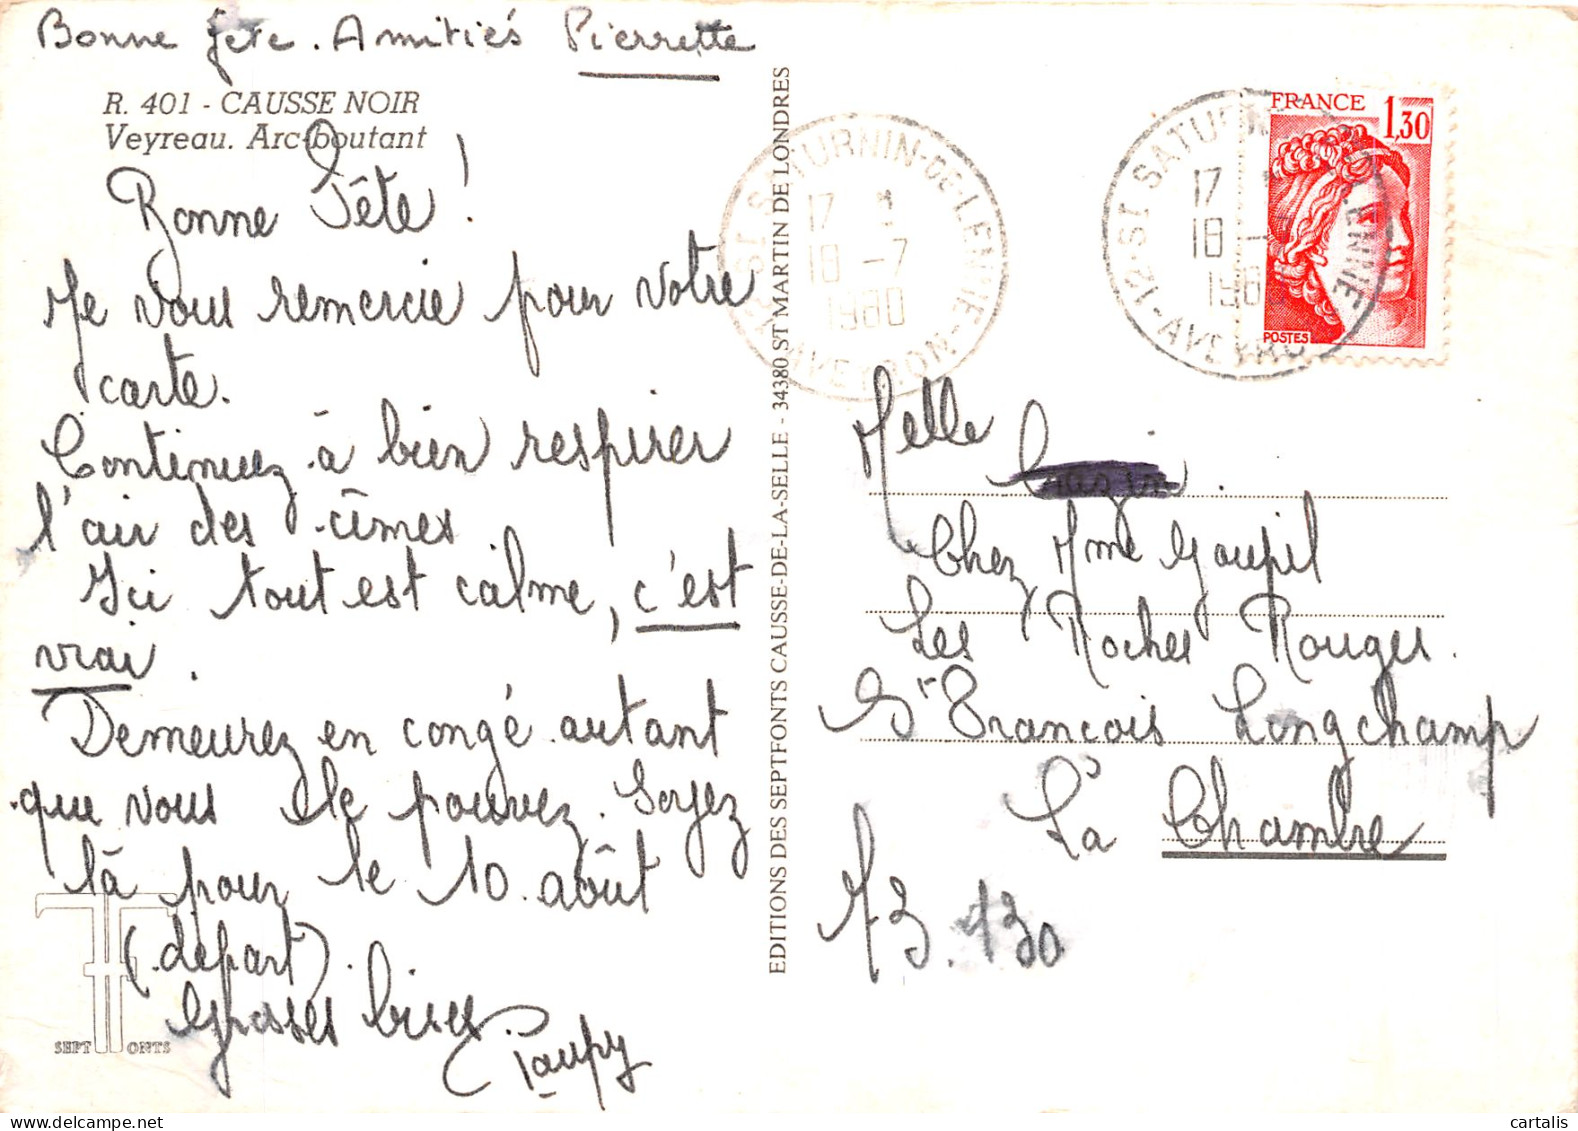 Bonne fete. Amitiés Pierrette
R. 401 - CAUSSE NOIR
Veyreau. Arc-boutant
Bonne Fête !
Je vous remercie pour votre
carte.
Continuez à bien respirer
l'air des cîmes
Ici tout est calme, c'est
vrai.
Demeurez en congé autant
que vous le pouvez. Soyez
là pour le 10 août
(départ).
Grosses bises
SEPT FONTS
EDITIONS DES SEPTFONTS CAUSSE-DE-LA-SELLE - 34380 ST MARTIN DE LONDRES
12-ST SATURNIN-DE-LENNE - AVEYRON
17 *
18 -7
1980
12-ST SATURN LENNE - AVEYRO
17 *
18 -
198
FRANCE 1,30
POSTES
Melle
Chez Mme Goupil
Les Roches Rouges.
St Francois Longchamp
La Chambre
73.130
cartalis